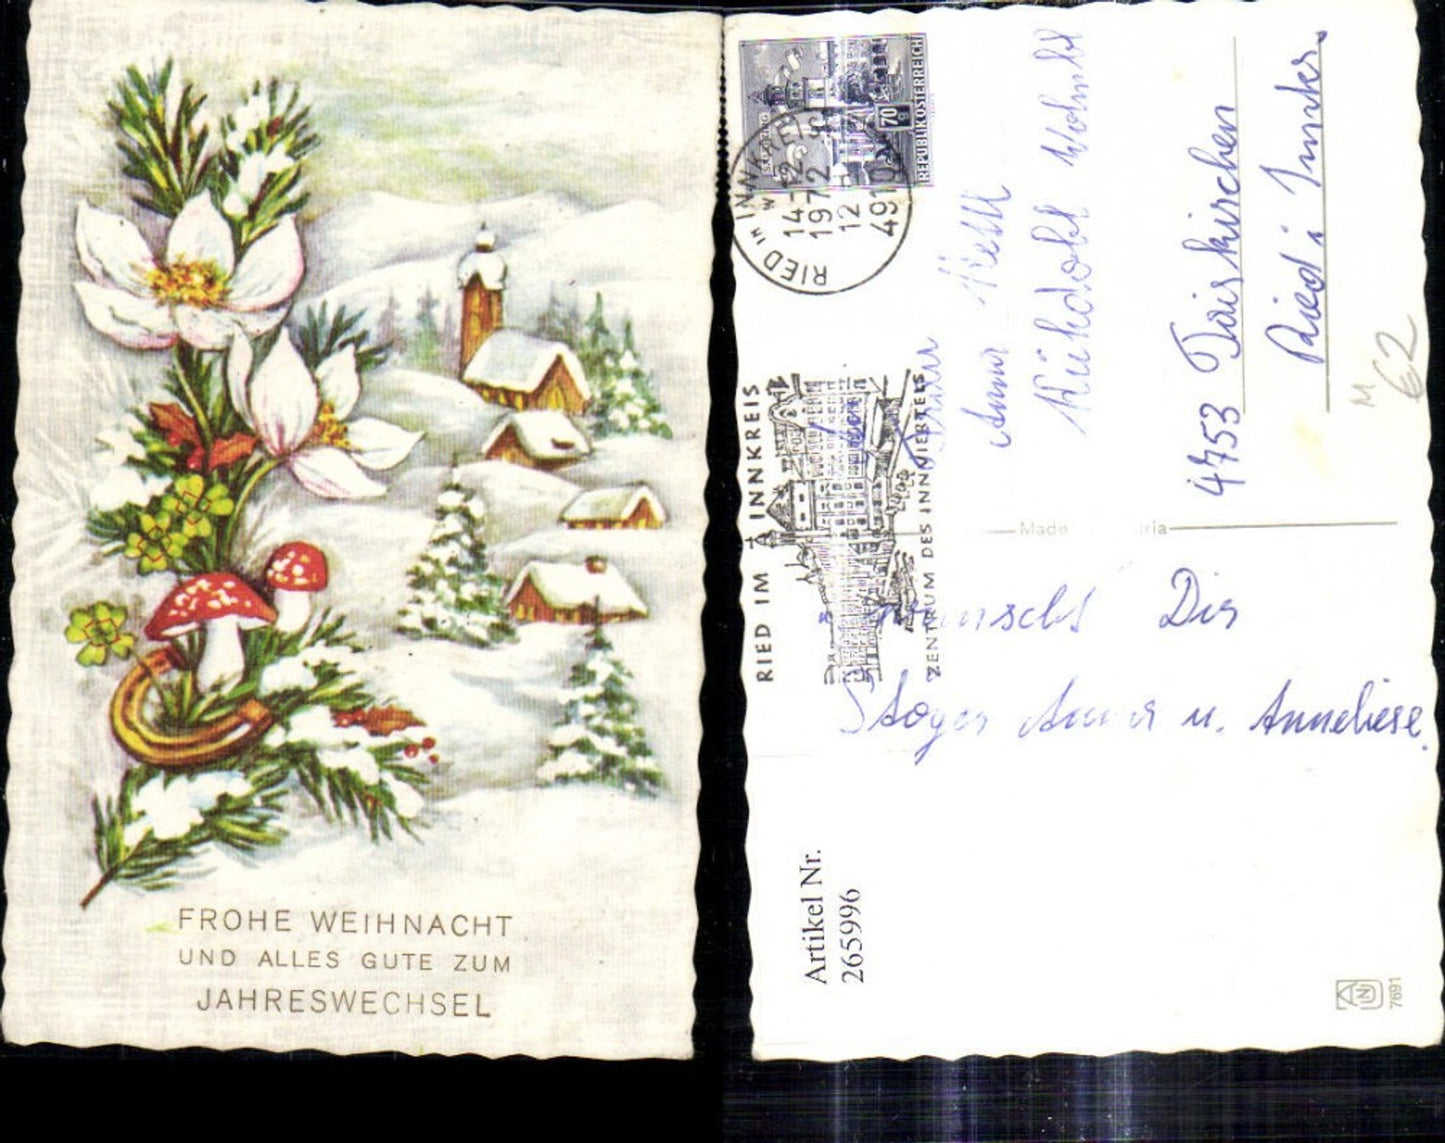 FROHE WEIHNACHT
UND ALLES GUTE ZUM
JAHRESWECHSEL
REPUBLIK ÖSTERREICH
70
RIED IM INNKREIS
14-12
1972
12
4910
RIED IM INNKREIS
ZENTRUM DES INNVIERTELS
Anna
4753 Taiskirchen
Ried i. Innkr.
M
62
Made
ria
wünscht Dir
Anna u. Anneliese.
Artikel Nr.
265996
7691